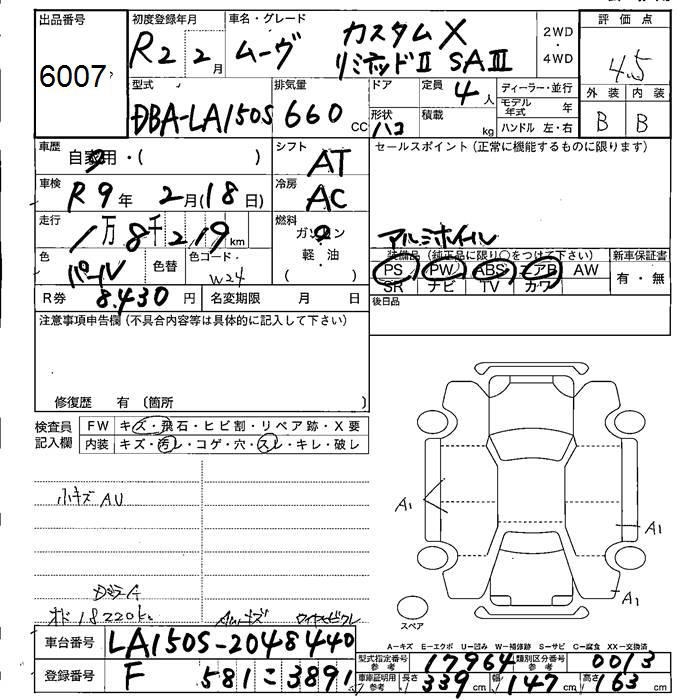 出品番号
6007
初度登録年月
R2 2月
車名・グレード
ムーヴ カスタムX
リミテッドⅡ SAⅢ
2WD
・
4WD
評価点
4.5
外装 内装
B B
型式
DBA-LA150S
排気量
660 cc
ドア
定員
4人
形状
ハコ
積載
kg
ディーラー・並行
モデル年式 年
ハンドル 左・右
車歴
自家用・( )
シフト
AT
セールスポイント(正常に機能するものに限ります)
車検
R9年 2月(18日)
冷房
AC
走行
1万8千219km
燃料
ガソリン
軽・油
( )
アルミホイール
色
パール
色替
色コード
W24
装備品(純正品に限り○をつけて下さい)
PS PW ABS エアB AW
SR ナビ TV カワ
新車保証書
有・無
R券 8.430円
名変期限 月 日
後日品
注意事項申告欄(不具合内容等は具体的に記入して下さい)
修復歴 有 〔箇所 〕
検査員
記入欄
FW キズ・飛石・ヒビ割・リペア跡・X要
内装 キズ・汚レ・コゲ・穴・スレ・キレ・破レ
小キズ AU
18220k
A1
A1
A1
スペア
A-キズ E-エクボ U-凹み W-補修跡 S-サビ C-腐食 XX-交換済
車台番号
LA150S-2048440
登録番号
F 581 こ 3891
型式指定番号
参考
17964
類別区分番号
参考
0013
車庫証明用
参考
長さ 339cm
幅 147cm
高さ 163cm